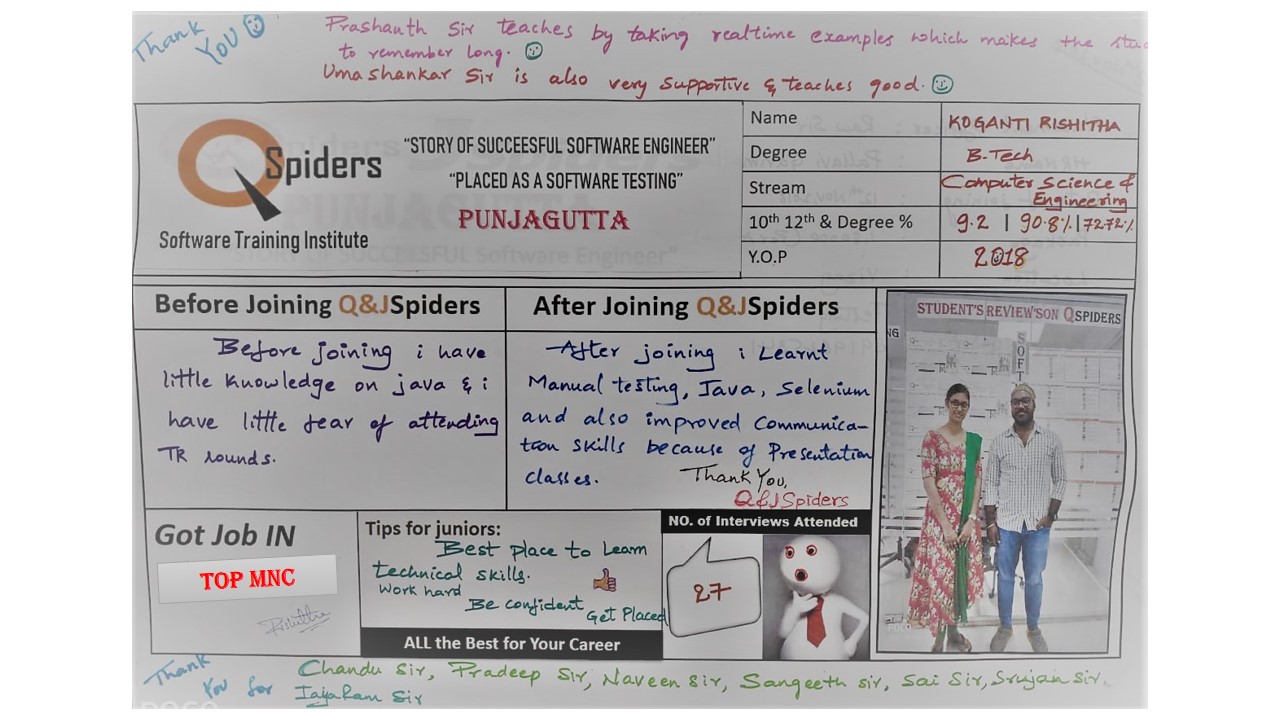 Thank
You
Prashanth Sir teaches by taking realtime examples which makes the
to remember long.
Uma shankar Sir is also very supportive & teaches good.
QSpiders
Software Training Institute
“STORY OF SUCCEESFUL SOFTWARE ENGINEER”
“PLACED AS A SOFTWARE TESTING”
PUNJAGUTTA
Name KOGANTI RISHITHA
Degree B-Tech
Stream Computer Science &
Engineering
10th 12th & Degree % 9.2 | 90.8% | 72.72%
Y.O.P 2018
Before Joining Q&JSpiders
Before joining i have
little knowledge on java & i
have little fear of attending
TR rounds.
After Joining Q&JSpiders
After joining i Learnt
Manual testing, Java, Selenium
and also improved Communica-
tion skills because of Presentation
classes.
Thank You,
Q&JSpiders
STUDENT'S REVIEW'S ON QSPIDERS
NG
SOFT
Got Job IN
TOP MNC
Rishitha
Tips for juniors:
Best place to Learn
technical skills.
Work hard
Be confident
Get Placed
ALL the Best for Your Career
NO. of Interviews Attended
27
POCO
Thank
You for
Chandu Sir, Pradeep Sir, Naveen Sir, Sangeeth sir, Sai Sir, Srujan sir,
JayaRam Sir
POCO